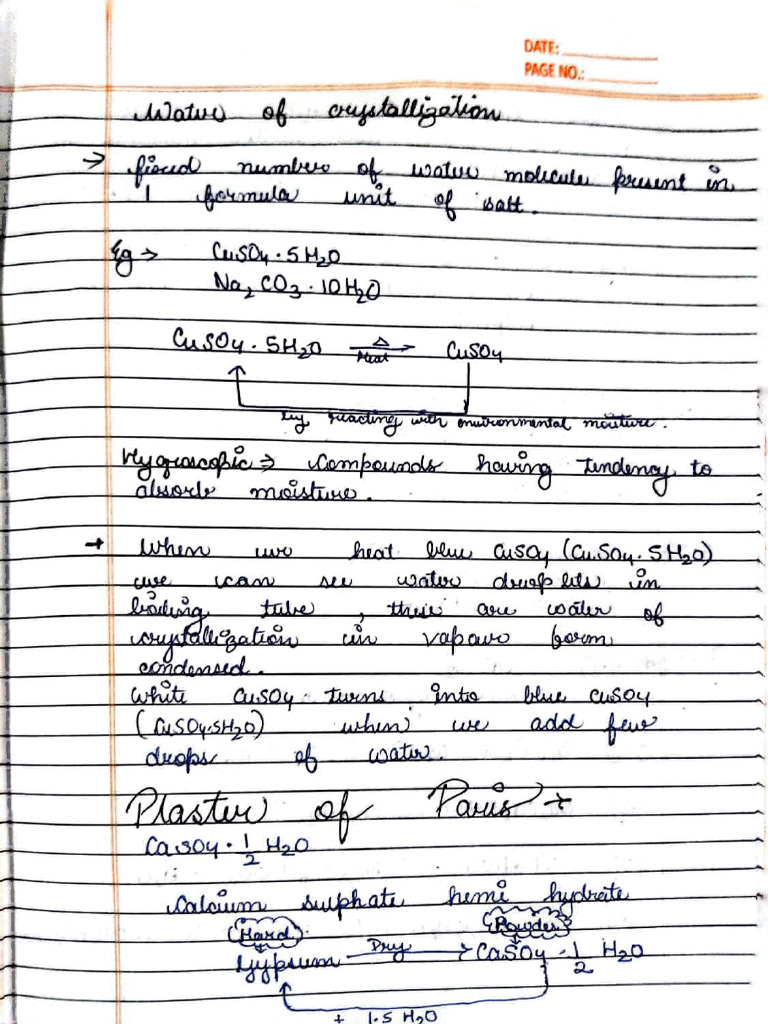 DATE:
PAGE NO.:
Water of crystallization
→ fixed number of water molecule present in
1 formula unit of salt.
Eg → CuSO₄·5H₂O
Na₂CO₃·10H₂O
CuSO₄·5H₂O Δ Heat → CuSO₄
by reacting with environmental moisture.
Hygroscopic ⇒ Compounds having tendency to
absorb moisture.
→ When we heat blue CuSO₄ (CuSO₄·5H₂O)
we can see water droplets in
boiling tube, these are water of
crystallization in vapour form
condensed.
White CuSO₄ turns into blue CuSO₄
(CuSO₄·5H₂O) when we add few
drops of water.
Plaster of Paris →
CaSO₄·1/2 H₂O
Calcium sulphate hemi hydrate
Hard Powder
Gypsum Dry → CaSO₄·1/2 H₂O
+ 1.5 H₂O